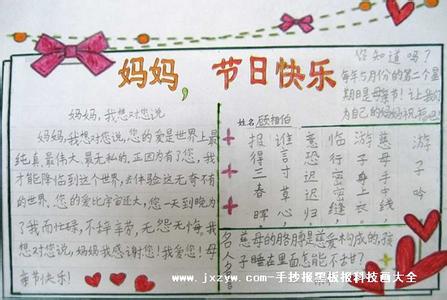 妈妈，节日快乐
你知道吗？
每年5月份的第二个星
期日是母亲节！让我们
为自己的妈妈祝福吧！
妈妈，我想对您说
妈妈，我想对您说，您的爱是世界上最
纯真、最伟大、最无私的。正因为有了您，我
才能降临到这个世界，去体验这无奇不有
的世界。您的爱比宇宙还大，您一天到晚为
了我而忙碌，不辞辛苦，无怨无悔。我
想对您说，妈妈我感谢您！我爱您！母
亲节快乐！
姓名
游子吟
慈母手中线
游子身上衣
临行密密缝
意恐迟迟归
谁言寸草心
报得三春晖
名言
慈母的胳膊是慈爱构成的，孩
子睡在里面怎能不甜？
www.jxzyw.com-手抄报黑板报科技画大全